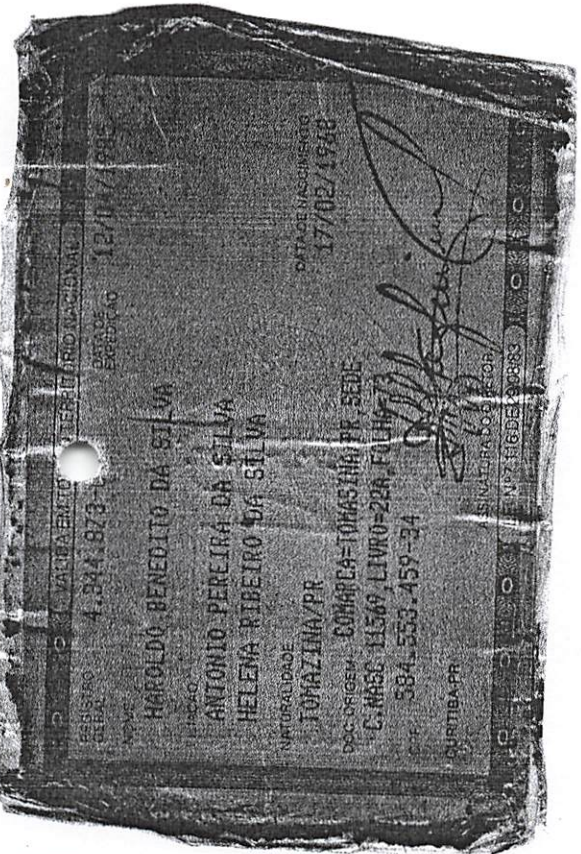 VÁLIDA EM TODO O TERRITÓRIO NACIONAL
REGISTRO GERAL 4.344.873- DATA DE EXPEDIÇÃO
NOME
HAROLDO BENEDITO DA SILVA
FILIAÇÃO
ANTONIO PEREIRA DA SILVA
HELENA RIBEIRO DA SILVA
NATURALIDADE DATA DE NASCIMENTO
TOMAZINA/PR 17/02/1948
DOC ORIGEM COMARCA=TOMASINA/PR, SEDE
C.NASC 11569, LIVRO=22A,
CPF 584.553.459-34
CURITIBA-PR
ASSINATURA DO DIRETOR
LEI Nº 7.116 DE 29/08/83